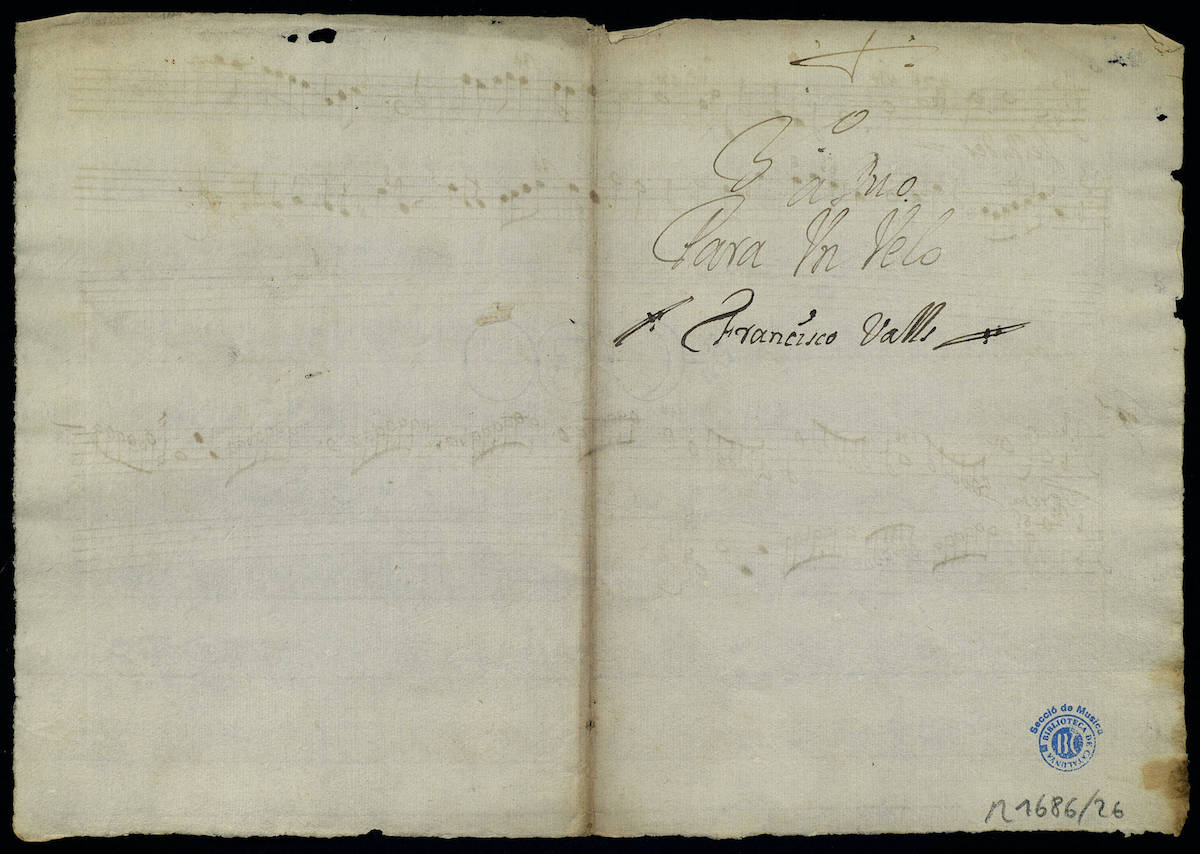 Para Vn Velo
Francisco Valls
Secció de Musica
BIBLIOTECA DE CATALUNYA
BC
n 1686/26